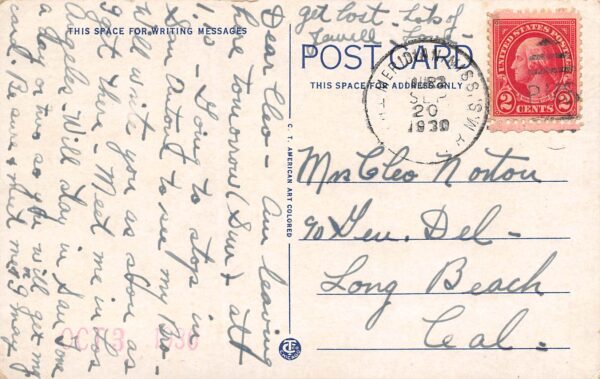 THIS SPACE FOR WRITING MESSAGES
Dear Cleo - Am leaving
here tomorrow (Sun) & alt
I is Going to stop in
San Anton to see my Bro -
Will write you as soon as
I get there - Meet me in Los
Angeles Will stay in San Tone
a day or two so you will get my
card. Be sure & meet me I may
get lost - Lots of
Love
POST CARD
THIS SPACE FOR ADDRESS ONLY
MERIDIAN, MISS.
SEP
20
1930
UNITED STATES POSTAGE
2 CENTS 2
Mrs Cleo Norton
℅ Gen. Del -
Long Beach
Cal -
C. T. AMERICAN ART COLORED
OCT 3 1930
CT
CHICAGO